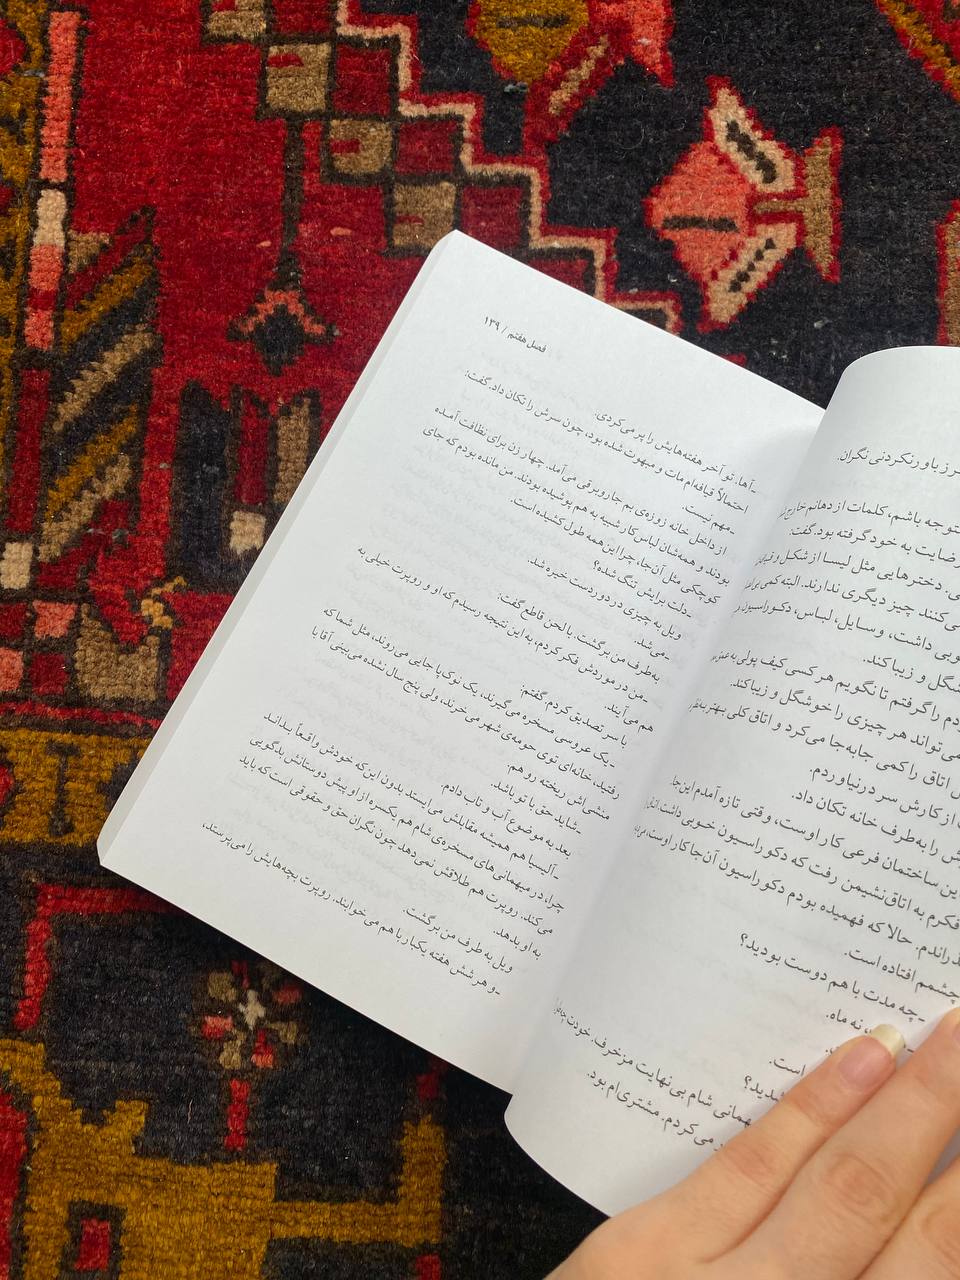 رز باور نکردنی نگران.
توجه باشم، کلمات از دهانم خارج
رضایت به خود گرفته بود. گفت:
دخترهایی مثل لیسا از شکل و
می‌کنند چیز دیگری ندارند. البته کمی
خوبی داشت، وسایل، لباس، دکوراسیون
شگل و زیبا کند.
را گرفتم تا نگویم هر کسی کیف پولی به
می‌تواند هر چیزی را خوشگل و زیبا کند.
اتاق را کمی جابه‌جا می‌کرد و اتاق کلی بهتر
از کارش سر در نیاوردم.
را به‌طرف خانه تکان داد.
این ساختمان فرعی کار اوست، وقتی تازه آمدم این‌جا
فکرم به اتاق نشیمن رفت که دکوراسیون خوبی داشت.
گذراندم. حالا که فهمیده بودم دکوراسیون آن‌جا کار اوست،
چشمم افتاده است.
ـ چه مدت با هم دوست بودید؟
نه ماه.
است.
شدید؟
مهمانی شام بی‌نهایت مزخرف. خودت
می‌کردم. مشتری‌ام بود.
فصل هفتم / ۱۳۹
ـ آها. تو آخر هفته‌هایش را پر می‌کردی.
احتمالاً قیافه‌ام مات و مبهوت شده بود، چون سرش را تکان داد. گفت:
ـ مهم نیست.
از داخل خانه زوزه‌ی بم جاروبرقی می‌آمد. چهار زن برای نظافت آمده
بودند و همه‌شان لباس کار شبیه به هم پوشیده بودند. من مانده بودم که جای
کوچکی مثل آن‌جا، چرا این همه طول کشیده است.
ـ دلت برایش تنگ شده؟
ویل به چیزی در دوردست خیره شد.
ـ می‌شد.
به‌طرف من برگشت. با لحن قاطع گفت:
ـ من در موردش فکر کردم، به این نتیجه رسیدم که او و روپرت خیلی به
هم می‌آیند.
با سر تصدیق کردم. گفتم:
ـ یک عروسی مسخره می‌گیرند، یک نوک پا جایی می‌روند، مثل شما که
رفتید، خانه‌ای توی حومه‌ی شهر می‌خرند، ولی پنج سال نشده می‌بینی آقا با
منشی‌اش ریخته رو هم.
ـ شاید حق با تو باشد.
بعد به موضوع آب و تاب دادم.
ـ آلیسیا هم همیشه مقابلش می‌ایستد بدون این‌که خودش واقعاً بداند
چرا، در میهمانی‌های مسخره‌ی شام هم یکسره از او پیش دوستانش بدگویی
می‌کند. روپرت هم طلاقش نمی‌دهد چون نگران حق و حقوقی است که باید
به او بدهد.
ویل به طرف من برگشت.
ـ و هر شش هفته یکبار با هم می‌خوابند. روپرت بچه‌هایش را می‌پرستد،